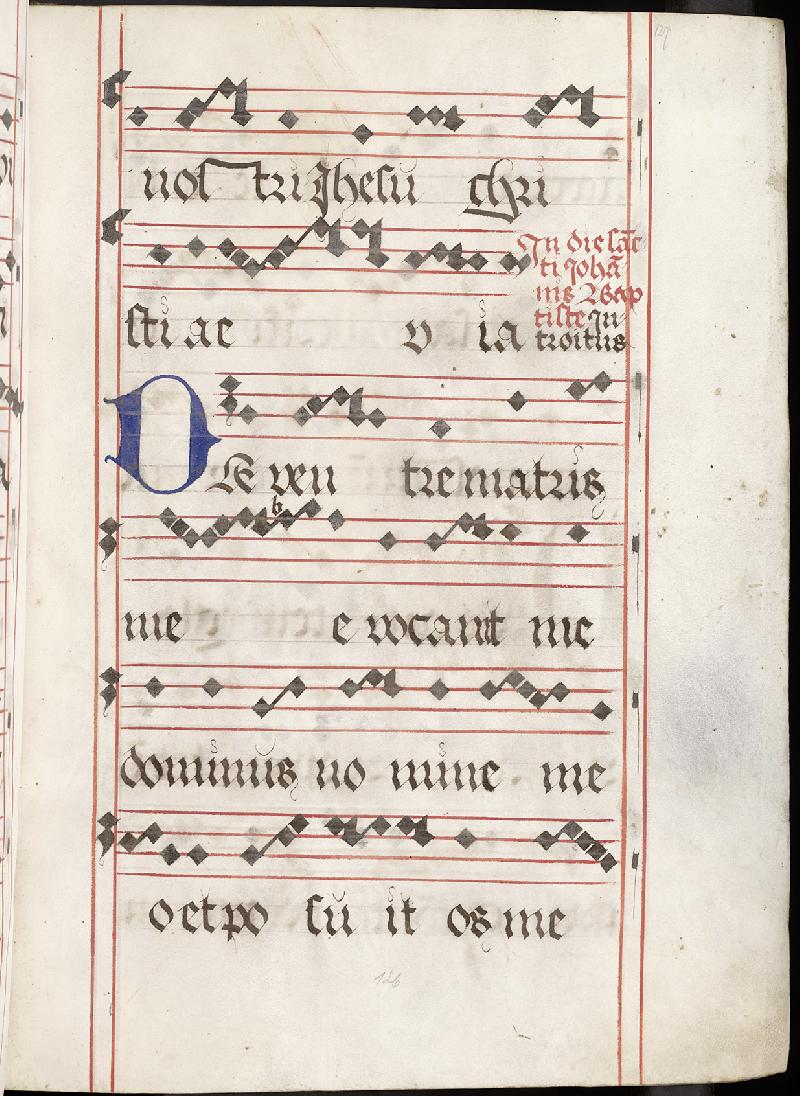 127
nos tri Jhesu chri
sti ae v ia
In die sāc
ti Johā
nis Bap
tiste In
troitus
DE ven tre matris
b
me e vocavit me
dominus no mine me
o et po su it os me
126